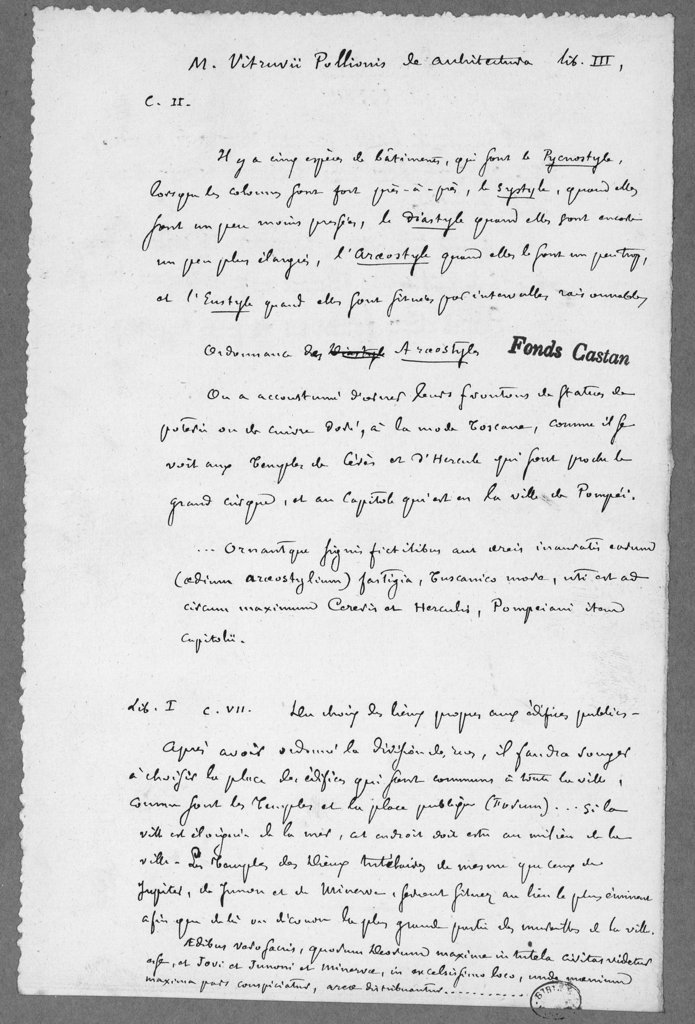 M. Vitruvii Pollionis de architectura lib. III,
C. II.
Il y a cinq espèces de bâtiments, qui sont le Pycnostyle,
lorsque les colonnes sont fort près-à-près, le Systyle, quand elles
sont un peu moins pressées, le Diastyle quand elles sont encore
un peu plus élargies, l'Aræostyle quand elles le sont un peu trop,
et l'Eustyle quand elles sont situées par intervalles raisonnables
Ordonnance des Diastyle Aræostyles
Fonds Castan
On a accoustumé d'orner leurs frontons de statues de
poterie ou de cuivre doré, à la mode Toscane, comme il se
voit aux Temples de Cérès et d'Hercule qui sont proche le
grand cirque, et au Capitole qui est en la ville de Pompéi.
... Ornantque signis fictilibus aut æreis inauratis earum
(ædium aræostylium) fastigia, Tuscanico more, uti est ad
circum maximum Cereris et Herculis, Pompeiani item
Capitolii.
Lib. I c. VII. Du choix des lieux propres aux édifices publics -
Après avoir ordonné la division des rues, il faudra songer
à choisir la place des édifices qui sont communs à toute la ville,
comme sont les Temples et la place publique (Forum)... Si la
ville est éloignée de la mer, cet endroit doit estre au milieu de la
ville - Les Temples des Dieux tutélaires de mesme que ceux de
Jupiter, de Junon et de Minerve, seront situez au lieu le plus éminent
afin que de là on découvre la plus grande partie des murailles de la ville.
Ædibus vero sacris, quorum Deorum maxime in tutela civitas videtur
esse, et Jovi et Junoni et Minervæ, in excelsissimo loco, unde mœnium
maxima pars conspiciatur, areæ distribuantur..........